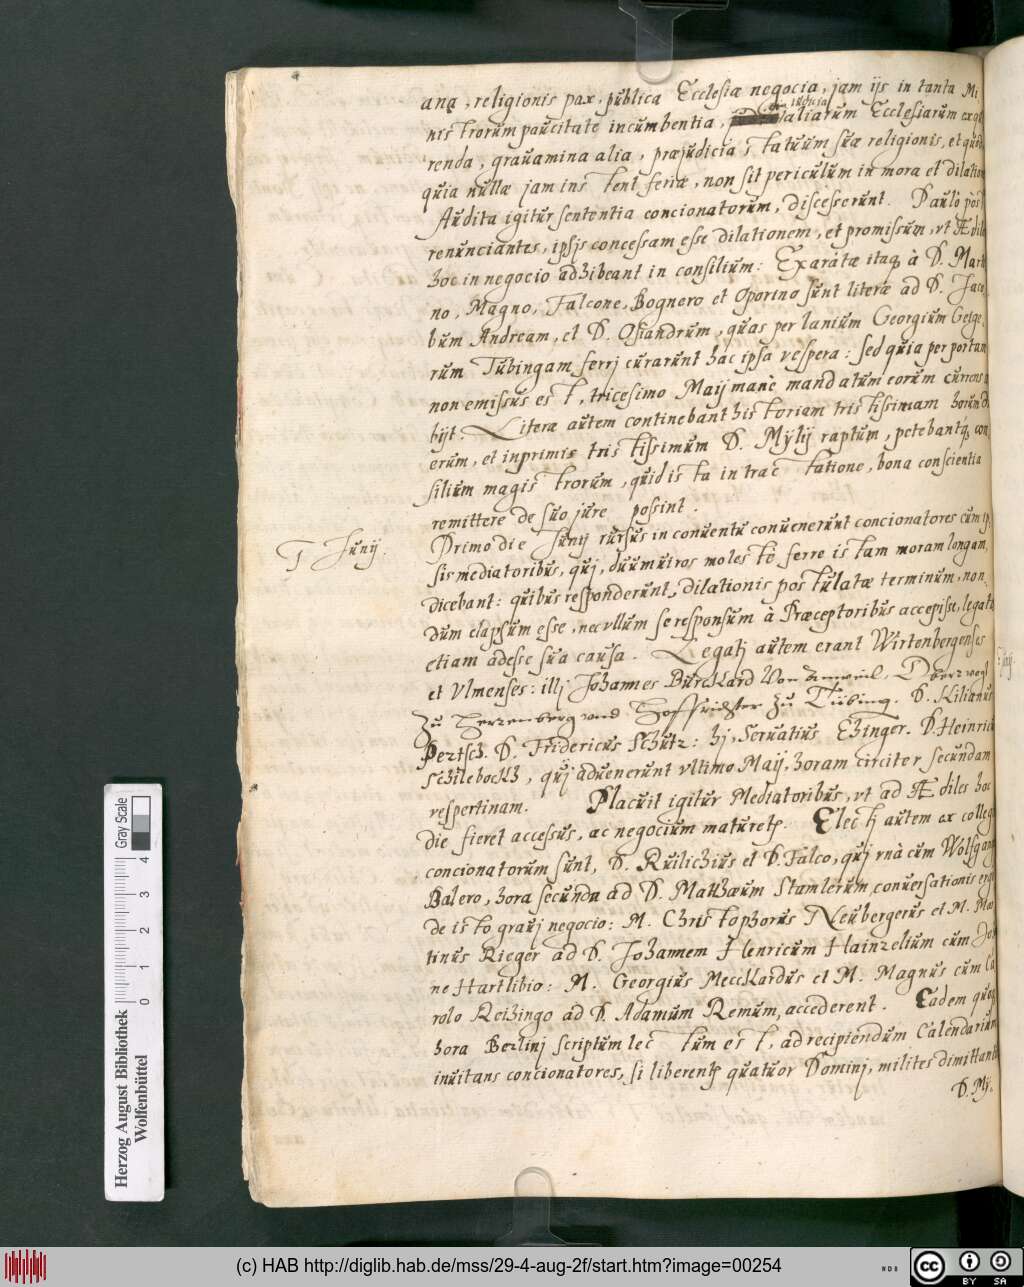 ana, religionis pax, publica Ecclesiæ negocia, jam ijs in tanta Mi
nistrorum paucitate incumbentia, judicia aliarum Ecclesiarum exqui
renda, grauamina alia, præjudicia statuum suæ religionis, et quod
quia nullæ jam instent feriæ, non sit periculum in mora et dilatione
Audita igitur sententia concionatorum, discesserunt. Paulò pòst
renunciantes, ipsis concessam esse dilationem, et promissum, vt Ædiles
hoc in negocio adhibeant in consilium: Exaratæ itaq à D. Marti
no, Magno, Falcone, Bognero et Oporino sunt literæ ad D. Jaco
bum Andream, et D. Osiandrum, quas per lanium Georgium Geige
rum Tubingam ferrj curarunt hac ipsa vespera: sed quia per portam
non emissus est, tricesimo Maij manè mandatum eorum currens
bijt. Literæ autem continebant historiam tristissimam horum di
erum, et inprimis tristissimum D. Mylij raptum, petebantq con
silium magistrorum, quid ista in tractatione, bona conscientia
remittere de suo jure possint.
1 Junij. Primo die Junij rursus in conuentu conuenerunt concionatores cum ip
sis mediatoribus, quj, duumuiros molestè ferre istam moram longam,
dicebant: quibus responderunt, dilationis postulatæ terminum, non
dum elapsum esse, nec vllum se responsum à Præceptoribus accepisse, legatos
etiam adesse sua causa. Legatj autem erant Wirtenbergenses
et Vlmenses: illj Johannes Burckard Von Anweil, Oberuogt
Zu Herrenberg vnd Hoffrichter zu Tübing. D. Kilianus
Pertsch. D. Fridericus Schütz: hj, Seruatius Ehinger. D. Heinrich
Schilebockh, quj aduenerunt vltimo Maij, horam circiter secundam
vespertinam. Placuit igitur Mediatoribus, vt ad Ædiles hoc
die fieret accessus, ac negocium maturetr. Electj autem ex collegio
concionatorum sunt, D. Rulichius et D. Falco, quj vnà cum Wolfgang
Balero, hora secunda ad D. Matthæum Stamlerum conuersationis ergo
de isto grauj negocio: M. Christophorus Neubergerus et M. Mar
tinus Rieger ad D. Johannem Henricum Hainzelium cum Jo
ne Hartlibio: M. Georgius Meckhardus et M. Magnus cum Ca
rolo Reihingo ad D. Adamum Remum, accederent. Eadem quoq
hora Berlinj scriptum lectum est, ad recipiendum Calendarium
inuitans concionatores, si liberentr quatuor Dominj, milites dimittant
D. My.
Herzog August Bibliothek
Wolfenbüttel
0 1 2 3 4 Gray Scale
(c) HAB http://diglib.hab.de/mss/29-4-aug-2f/start.htm?image=00254
WDB
cc BY SA